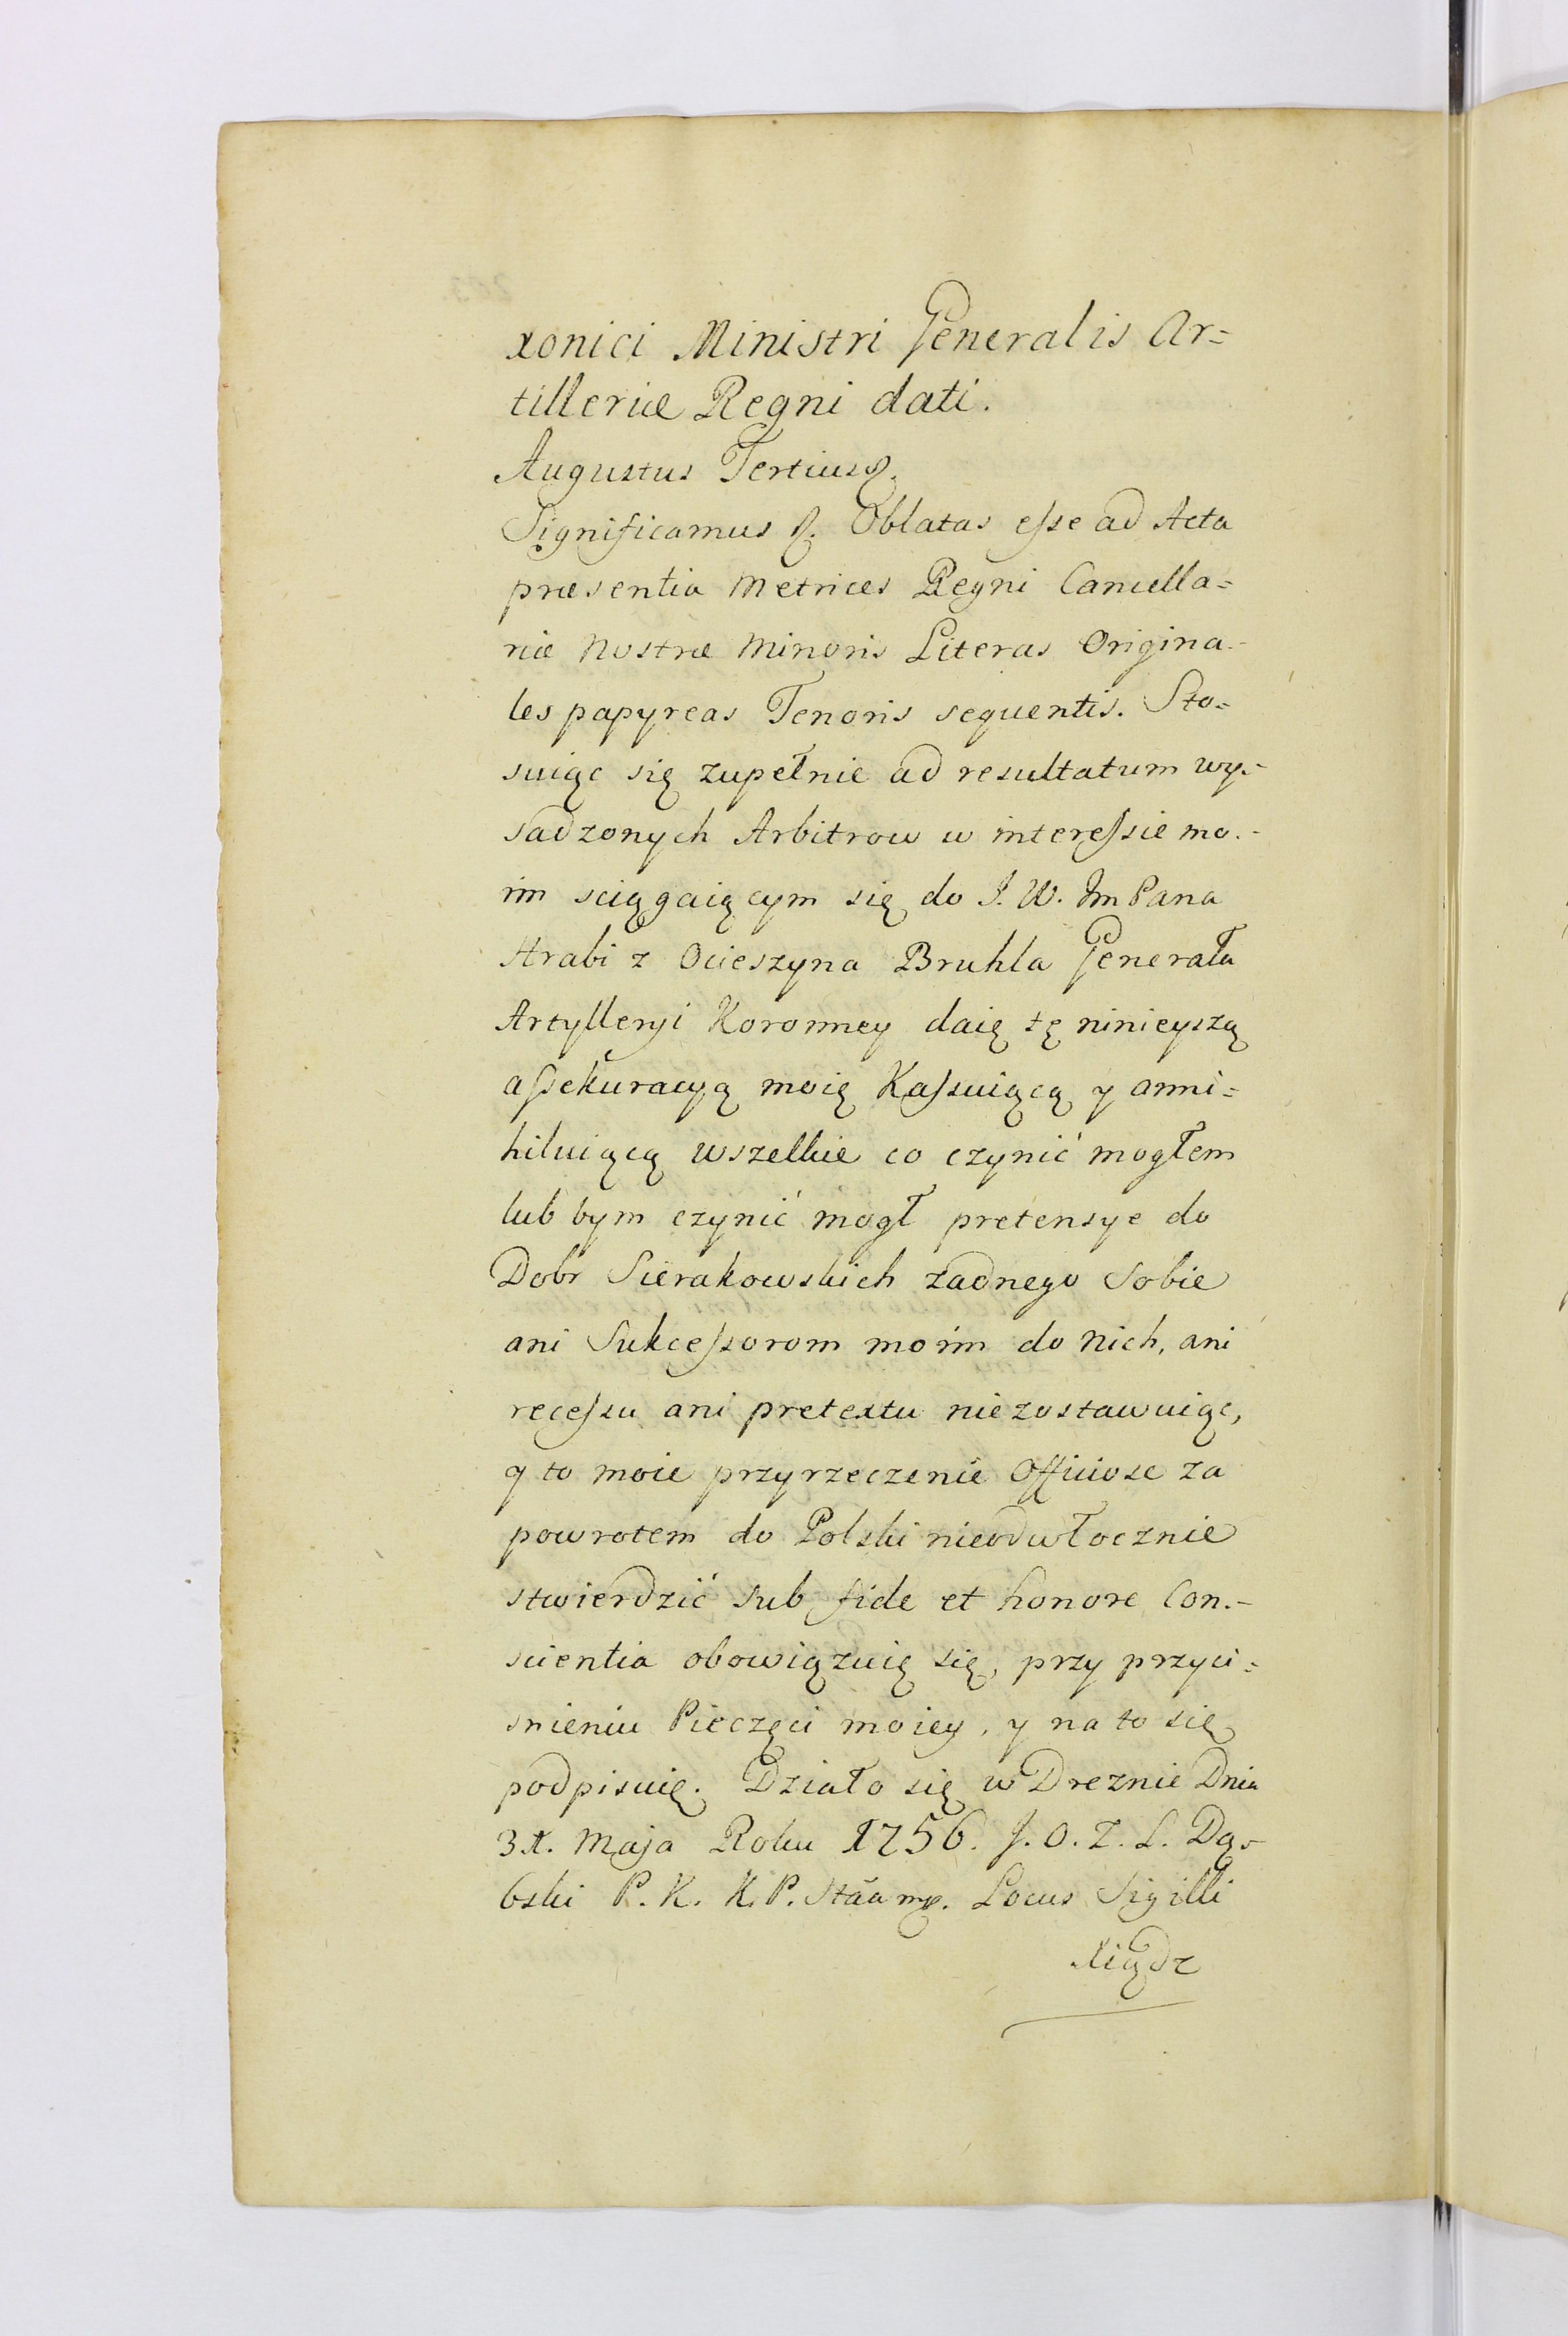 xonici Ministri Generalis Ar=
tilleriæ Regni dati.
Augustus Tertius &.
Significamus &. Oblatas esse ad Acta
præsentia Metrices Regni Cancella=
riæ Nostræ Minoris Literas Origina=
les papyreas Tenoris sequentis. Sto=
suiąc się zupełnie ad resultatum wy=
sadzonych Arbitrow w interessie mo=
im sciągaiącym się do J. W. Jm Pana
Hrabi z Ocieszyna Bruhla Generała
Artylleryi Koronney daię tę ninieyszą
assekuracyą moię Kassuiącą y anni=
hiluiącą wszelkie co czynić mogłem
lub bym czynić mogł pretensye do
Dobr Sierakowskich żadnego Sobie
ani Sukcessorom moim do nich, ani
recessu ani pretextu niezostawuiąc,
y to moie przyrzeczenie Officiose za
powrotem do Polski nieodwłocznie
stwierdzić sub fide et honore Con=
scientia obowiązuię się, przy przyci=
snieniu Pieczęci moiey, y na to się
podpisuię. Działo się w Dreznie Dnia
31. Maja Roku 1756. J. O. Z. L. Dą=
bski P. K. K. P. Stãa mp. Locus Sigilli
Xiądz